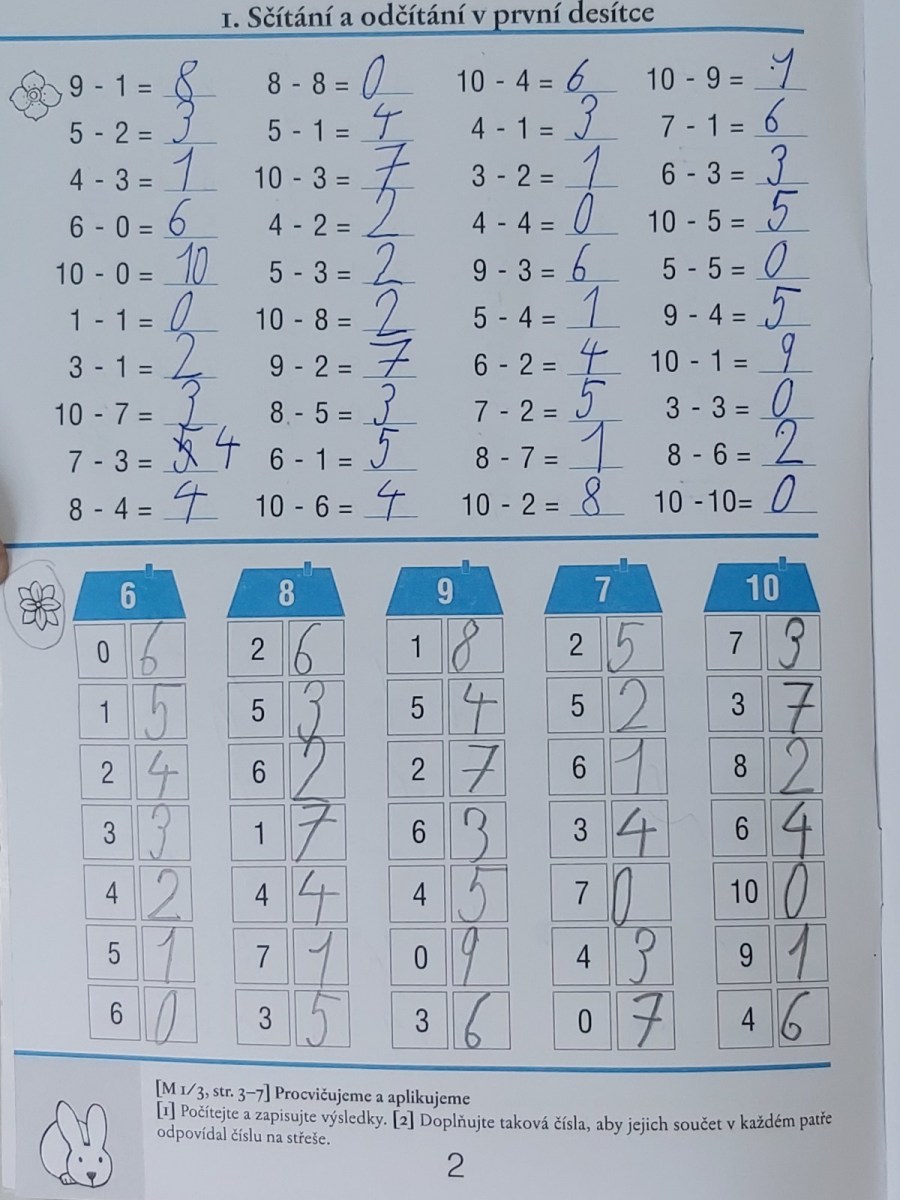 1. Sčítání a odčítání v první desítce
9 - 1 = 8 8 - 8 = 0 10 - 4 = 6 10 - 9 = 1
5 - 2 = 3 5 - 1 = 4 4 - 1 = 3 7 - 1 = 6
4 - 3 = 1 10 - 3 = 7 3 - 2 = 1 6 - 3 = 3
6 - 0 = 6 4 - 2 = 2 4 - 4 = 0 10 - 5 = 5
10 - 0 = 10 5 - 3 = 2 9 - 3 = 6 5 - 5 = 0
1 - 1 = 0 10 - 8 = 2 5 - 4 = 1 9 - 4 = 5
3 - 1 = 2 9 - 2 = 7 6 - 2 = 4 10 - 1 = 9
10 - 7 = 3 8 - 5 = 3 7 - 2 = 5 3 - 3 = 0
7 - 3 = 5 4 6 - 1 = 5 8 - 7 = 1 8 - 6 = 2
8 - 4 = 4 10 - 6 = 4 10 - 2 = 8 10 -10= 0
6 8 9 7 10
0 6 2 6 1 8 2 5 7 3
1 5 5 3 5 4 5 2 3 7
2 4 6 2 2 7 6 1 8 2
3 3 1 7 6 3 3 4 6 4
4 2 4 4 4 5 7 0 10 0
5 1 7 1 0 9 4 3 9 1
6 0 3 5 3 6 0 7 4 6
[M 1/3, str. 3–7] Procvičujeme a aplikujeme
[1] Počítejte a zapisujte výsledky. [2] Doplňujte taková čísla, aby jejich součet v každém patře
odpovídal číslu na střeše.
2